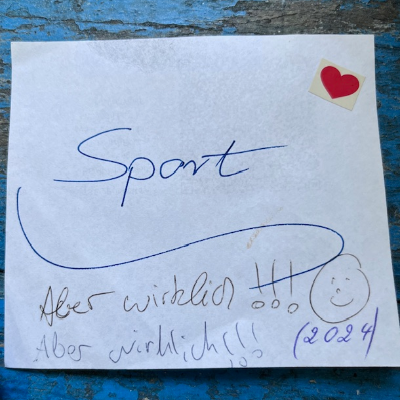 Sport
Aber wirklich!!!
Aber wirklich!!!
(2024)